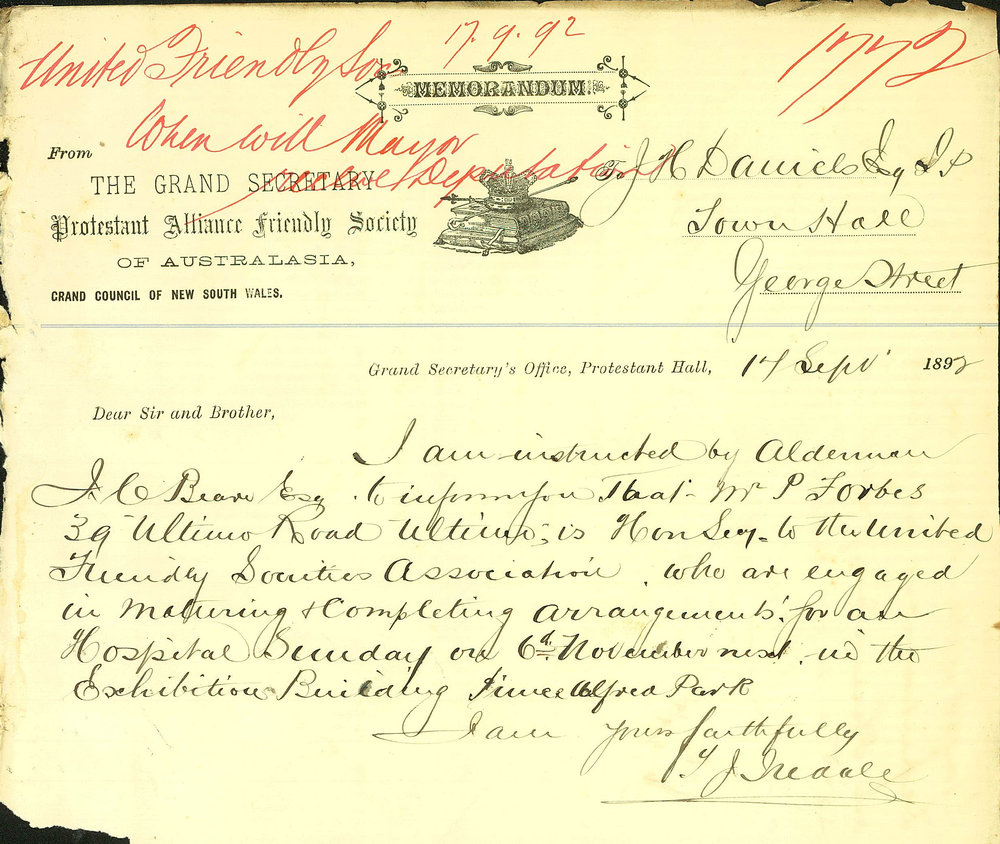 17.9.92
1772
United Friendly Soc
MEMORANDUM
When will Mayor
receive Deputation
From
THE GRAND SECRETARY
Protestant Alliance Friendly Society
OF AUSTRALASIA,
GRAND COUNCIL OF NEW SOUTH WALES.
To J H Daniels Esq J P
Town Hall
George Street
Grand Secretary's Office, Protestant Hall, 14 Sept 1892
Dear Sir and Brother,
I am instructed by Alderman
J. C Beare Esq. to inform you that Mr P Forbes
39 Ultimo Road Ultimo, is Hon Secy to the United
Friendly Societies Association, who are engaged
in maturing & completing arrangements for an
Hospital Sunday on 6th November next in the
Exhibition Building Prince Alfred Park
I am yours faithfully
T J Iredale